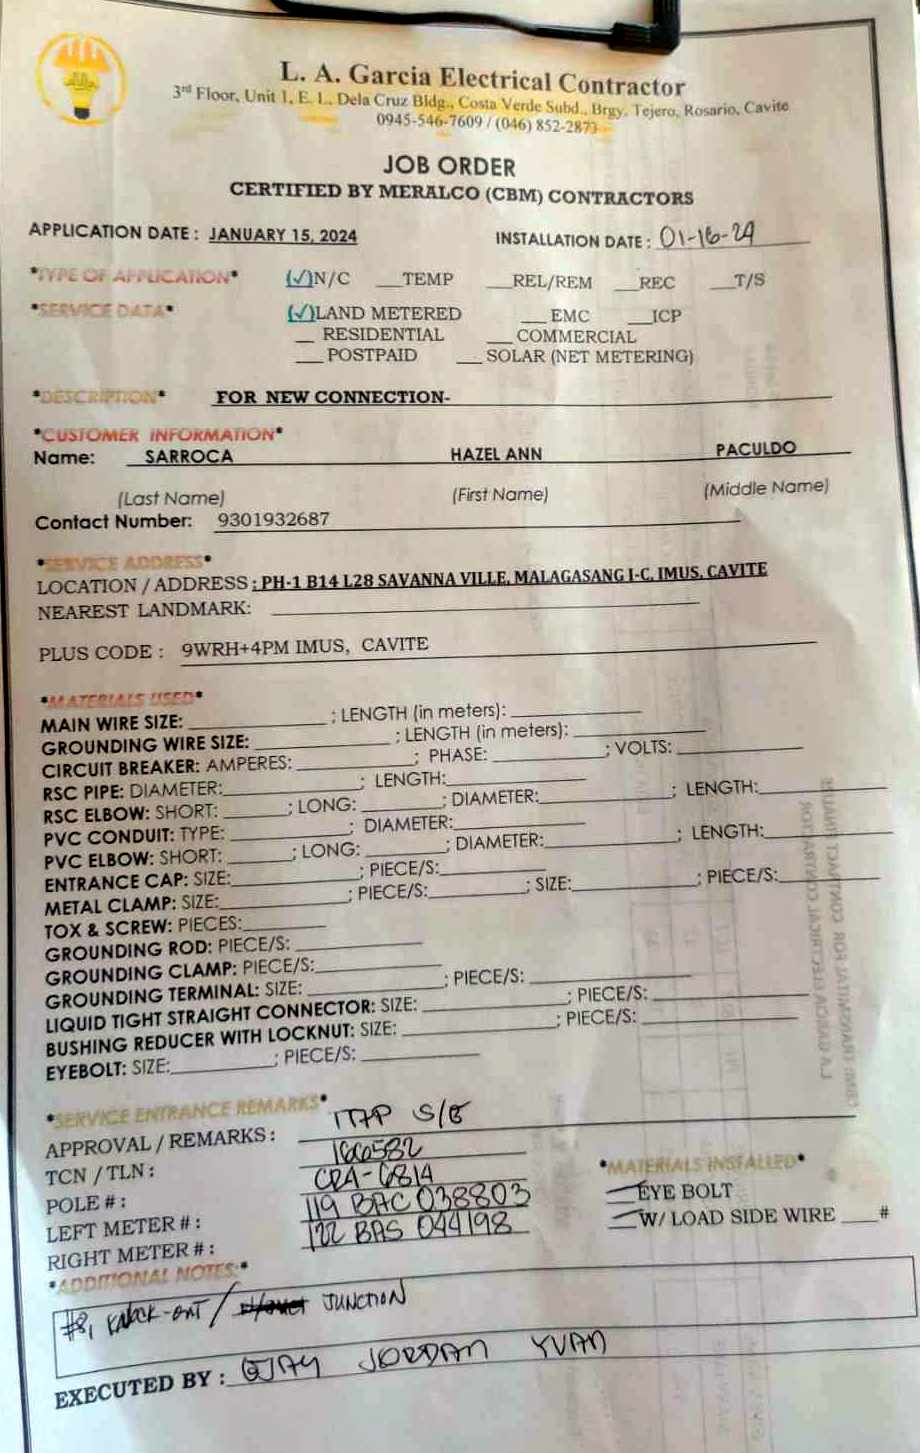 L. A. Garcia Electrical Contractor
3rd Floor, Unit 1, E. L. Dela Cruz Bldg., Costa Verde Subd., Brgy. Tejero, Rosario, Cavite
0945-546-7609 / (046) 852-2873
JOB ORDER
CERTIFIED BY MERALCO (CBM) CONTRACTORS
APPLICATION DATE : JANUARY 15, 2024 INSTALLATION DATE : 01-16-24
*TYPE OF APPLICATION* (✓)N/C ___TEMP ___REL/REM ___REC ___T/S
*SERVICE DATA* (✓)LAND METERED ___EMC ___ICP
__ RESIDENTIAL ___COMMERCIAL
___POSTPAID ___SOLAR (NET METERING)
*DESCRIPTION* FOR NEW CONNECTION-
*CUSTOMER INFORMATION*
Name: SARROCA HAZEL ANN PACULDO
(Last Name) (First Name) (Middle Name)
Contact Number: 9301932687
*SERVICE ADDRESS*
LOCATION / ADDRESS : PH-1 B14 L28 SAVANNA VILLE, MALAGASANG I-C, IMUS, CAVITE
NEAREST LANDMARK:
PLUS CODE : 9WRH+4PM IMUS, CAVITE
*MATERIALS USED*
MAIN WIRE SIZE: ; LENGTH (in meters):
GROUNDING WIRE SIZE: ; LENGTH (in meters):
CIRCUIT BREAKER: AMPERES: ; PHASE: ; VOLTS:
RSC PIPE: DIAMETER: ; LENGTH:
RSC ELBOW: SHORT: ; LONG: ; DIAMETER: ; LENGTH:
PVC CONDUIT: TYPE: ; DIAMETER:
PVC ELBOW: SHORT: ; LONG: ; DIAMETER: ; LENGTH:
ENTRANCE CAP: SIZE: ; PIECE/S:
METAL CLAMP: SIZE: ; PIECE/S: ; SIZE: ; PIECE/S:
TOX & SCREW: PIECES:
GROUNDING ROD: PIECE/S:
GROUNDING CLAMP: PIECE/S:
GROUNDING TERMINAL: SIZE: ; PIECE/S:
LIQUID TIGHT STRAIGHT CONNECTOR: SIZE: ; PIECE/S:
BUSHING REDUCER WITH LOCKNUT: SIZE: ; PIECE/S:
EYEBOLT: SIZE: ; PIECE/S:
*SERVICE ENTRANCE REMARKS*
APPROVAL / REMARKS : S/E
TCN / TLN : 166582
POLE # : CRA-6814
LEFT METER # : 119 BAC 038803
RIGHT METER # : 122 BAS 044198
*MATERIALS INSTALLED*
EYE BOLT
W/ LOAD SIDE WIRE ___#
*ADDITIONAL NOTES:*
#8, KNOCK-OUT / JUNCTION
EXECUTED BY : JORDAN YVAN